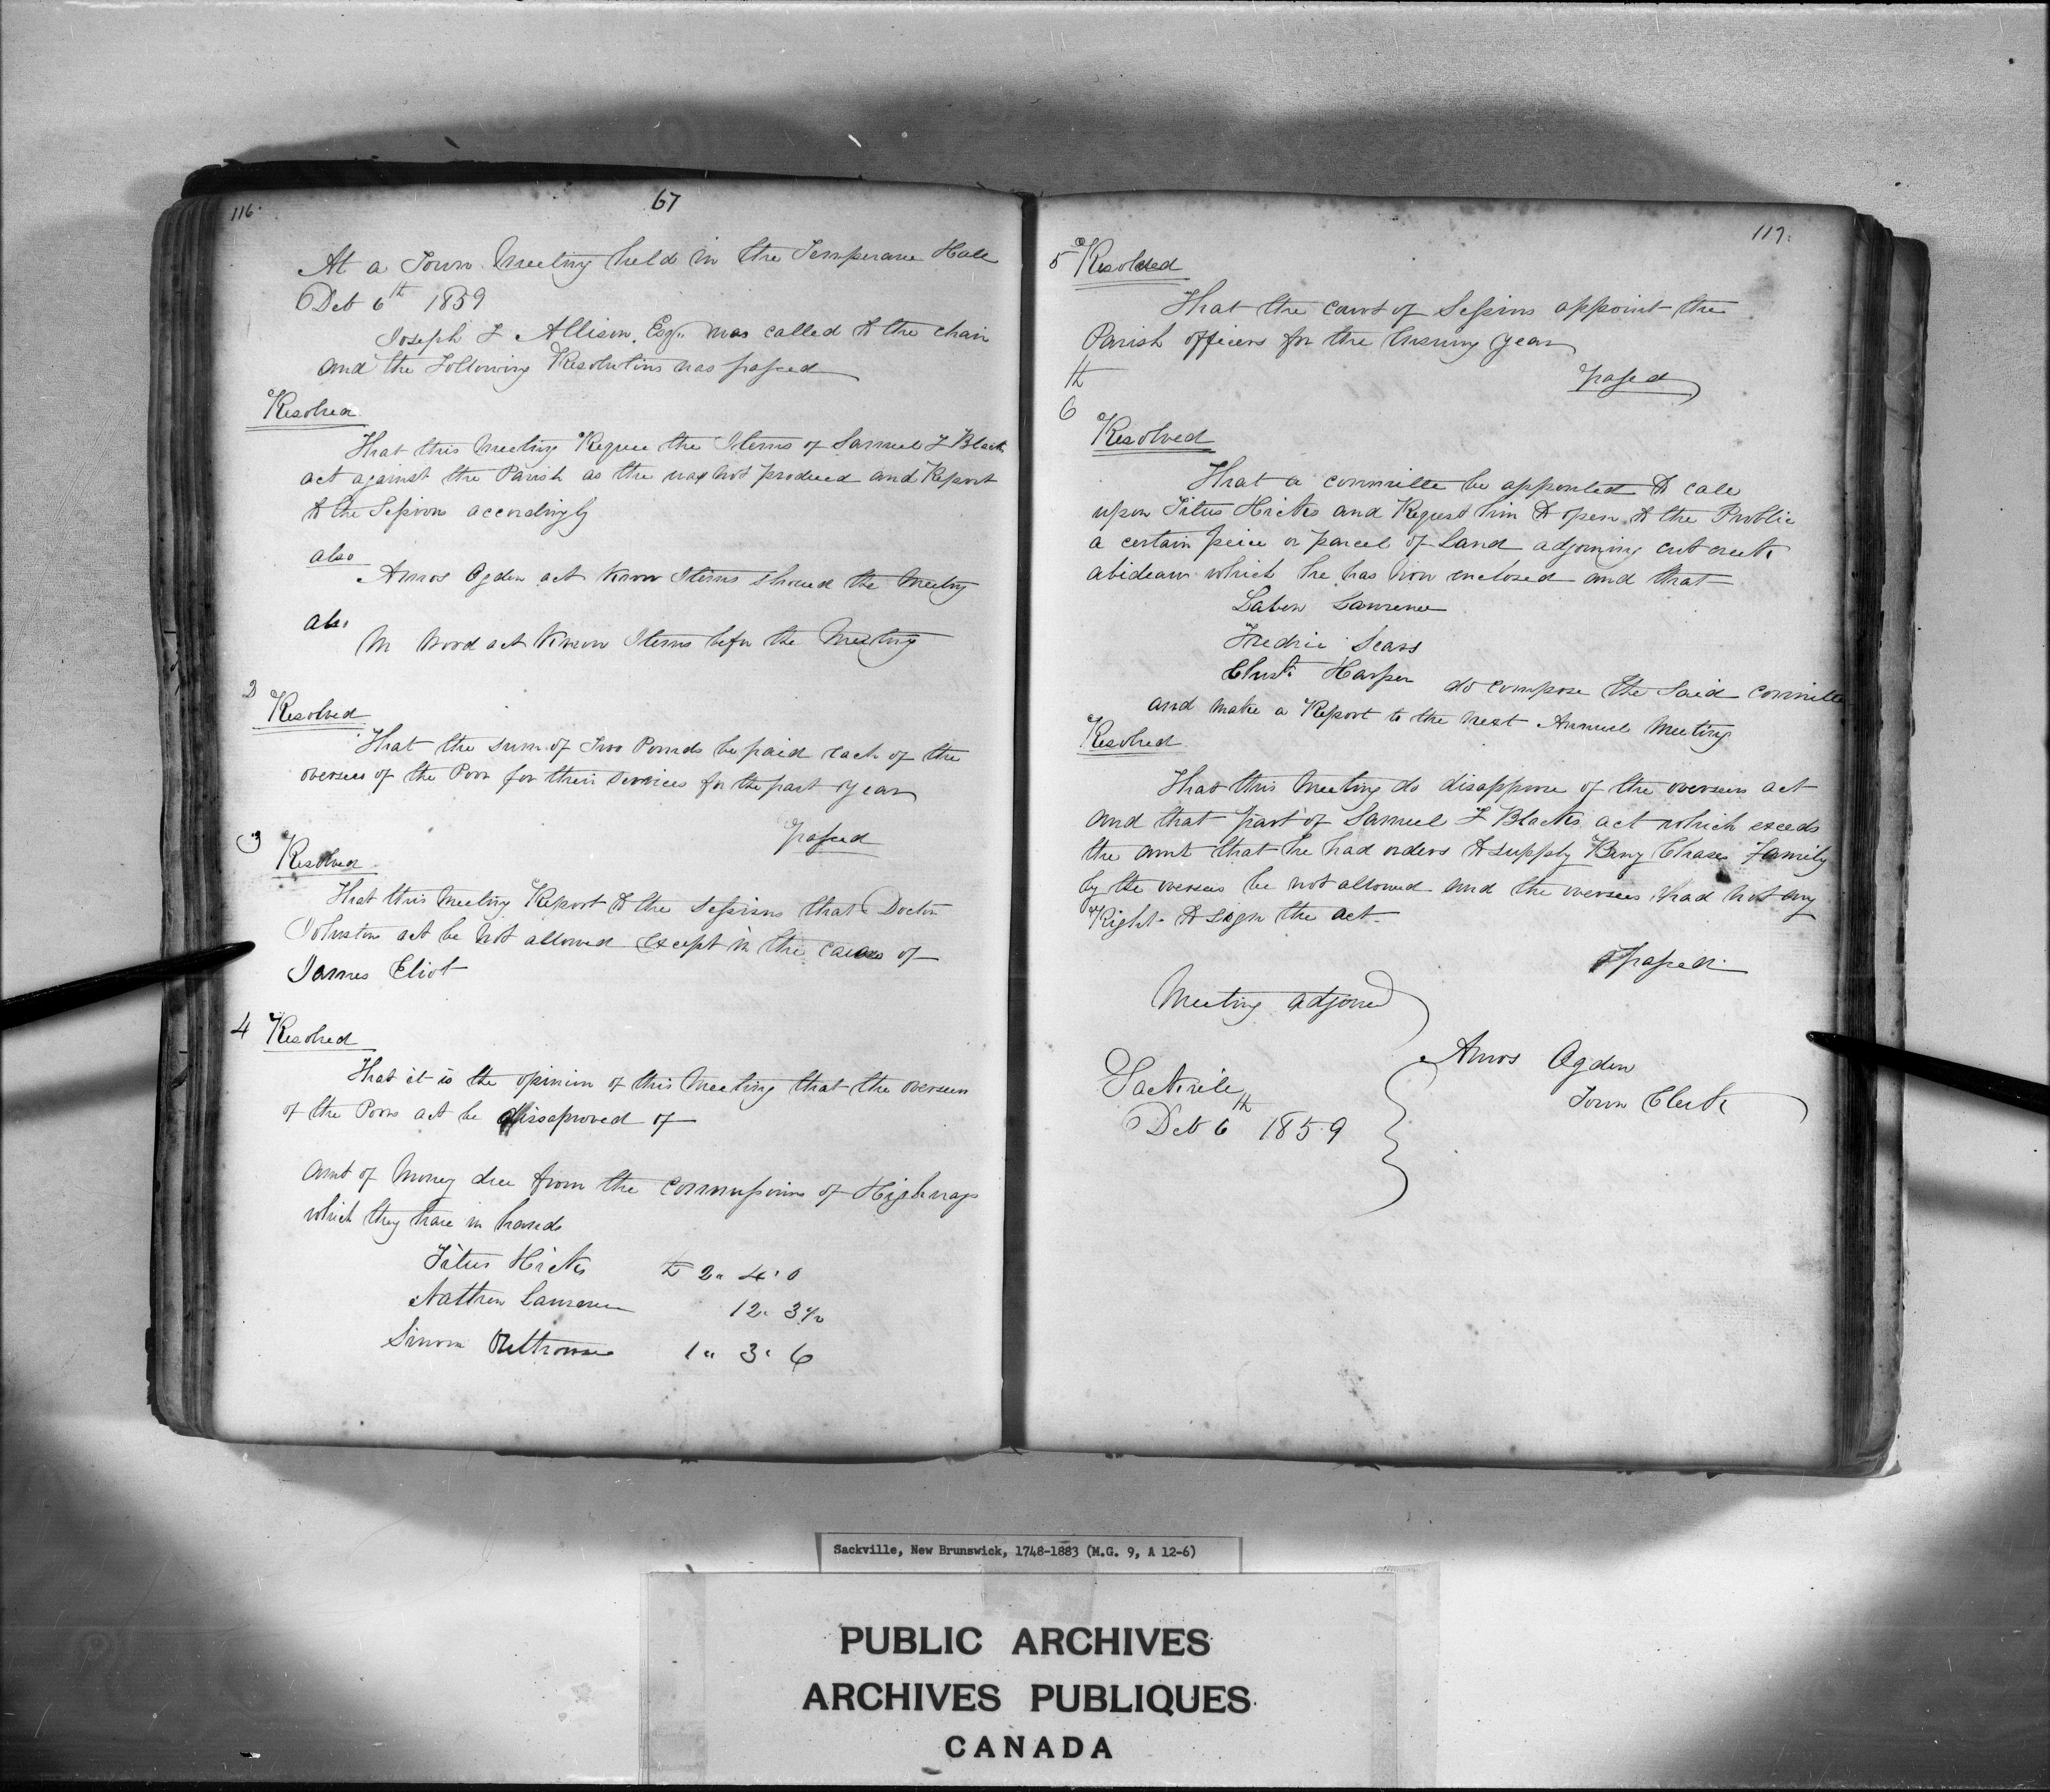 116.
67
At a Town Meeting held in the Temperance Hall
Dec 6th 1859
Joseph F Allison, Esq., was called to the chair
and the Following Resolutions was passed
Resolved
That this Meeting Require the Items of Samuel F Black
act against the Parish as the was not produced and Report
to the Sessions accordingly
also
Amos Ogden act know Items showed the Meeting
also
M Wood act know Items before the Meeting
2
Resolved
That the sum of Two Pounds be paid each of the
overseers of the Poor for their services for the past year
passed
3
Resolved
That this Meeting Report to the Sessions that Doctor
Johnston act be Not allowed except in the cases of
James Eliot
4 Resolved
That it is the opinion of this Meeting that the overseers
of the Poors act be dissaproved of
Amt of Money due from the commissioners of Highways
which they have in hands
Titus Hicks £ 2 " 4 " 0
Nathen Lawrence 12 " 3 1/2
Simon 1 " 3 " 6
117.
5 Resolved
That the court of Sessions appoint the
Parish officers for the Ensuing year
passed
th
6
Resolved
That a committe be appointed to call
upon Titus Hicks and Request him to open to the Public
a certain peice or parcel of Land adjoining
which he has now enclosed and that
Laben Lawrence
Fredric Sears
Christr Harper do compose the Said committe
and make a Report to the next Annuel Meeting
Resolved
That this Meeting do disapprove of the overseers act
and that part of Samuel F Blacks act which exceeds
the amt that he had orders to supply Benj Chases family
by the overseers be not allowed and the overseers had not any
Right to sign the act
passed
Meeting adjorned
Amos Ogden
Town Clerk
Sackvile
Dec 6th 1859
Sackville, New Brunswick, 1748-1883 (M.G. 9, A 12-6)
PUBLIC ARCHIVES
ARCHIVES PUBLIQUES
CANADA